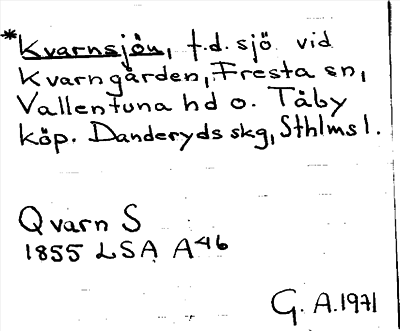 *Kvarnsjön, f.d. sjö vid
Kvarngården, Fresta sn,
Vallentuna hd o. Täby
köp. Danderyds skg, Sthlms l.
Qvarn S
1855 LSA A46
G. A. 1971